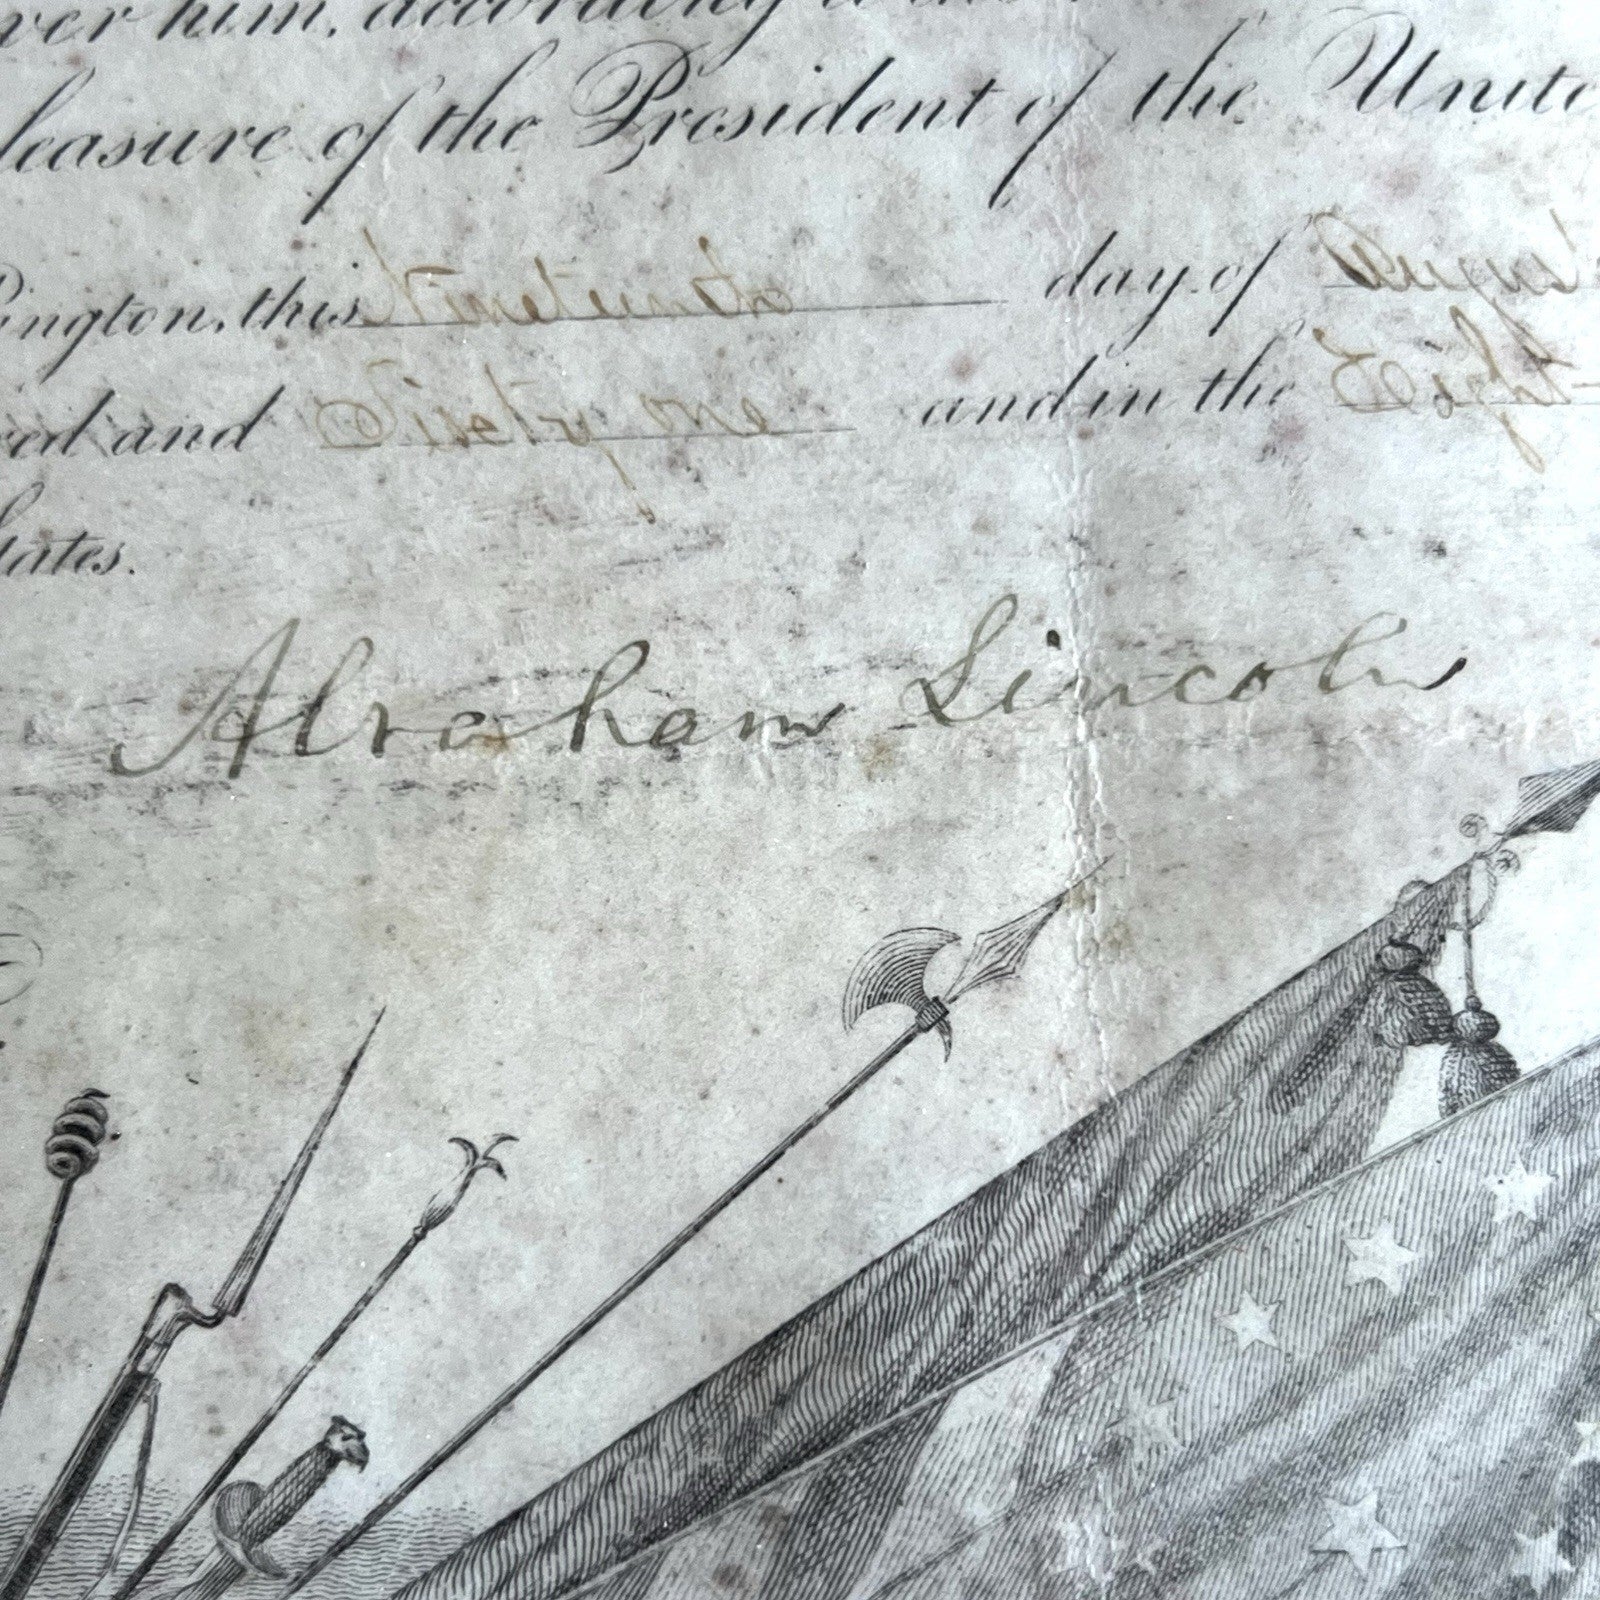 ver him, according to
leasure of the President of the Unite
ington, this day of August
red and Sixty one and in the Eighty-
tates.
Abraham Lincoln